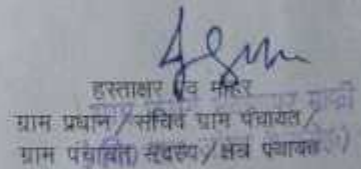 हस्ताक्षर एवं मोहर
ग्राम प्रधान/सचिव ग्राम पंचायत/
ग्राम पंचायत सदस्य/क्षेत्र पंचायत